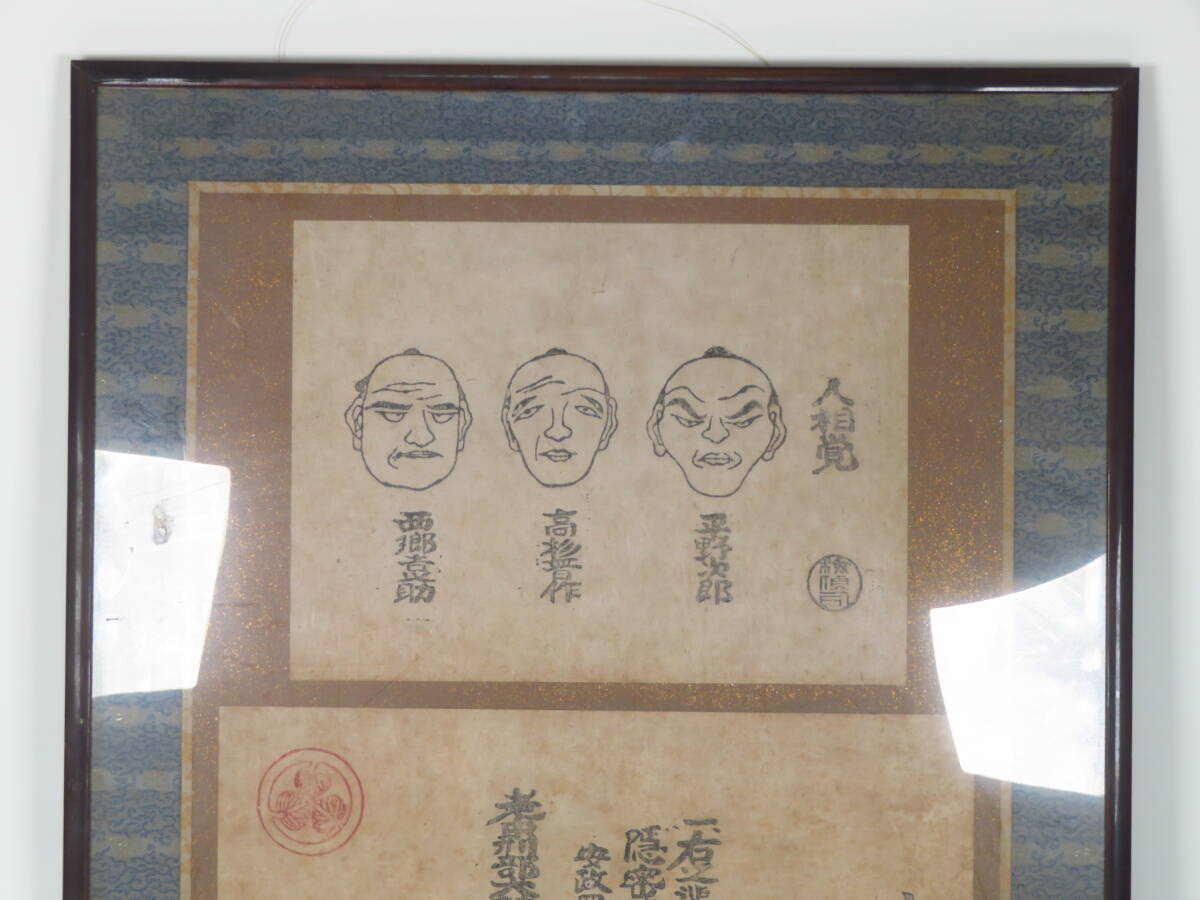 人相覚
平野次郎
高杉晋作
西郷吉之助
一、右之
隠密
安政
老中刑部